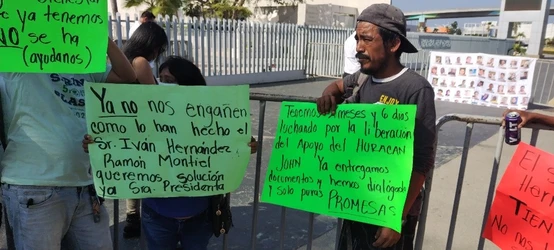 ya tenemos
NO se ha
(ayudanos)
Ya no nos engañen
como lo han hecho el
Sr. Iván Hernández,
Ramón Montiel
queremos, solución
ya Sra. Presidenta
Tenemos
meses y 6 dias
luchando por la liberación
del Apoyo del HURACAN
JOHN Ya entregamos
documentos y hemos dialogado
y solo puras PROMESAS
El S
Herna
TIEN
No nos